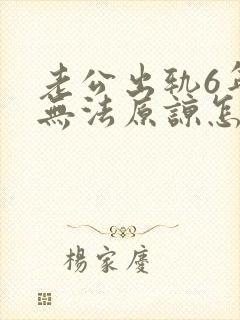 老公出軌6年
無法原諒怎
楊家慶